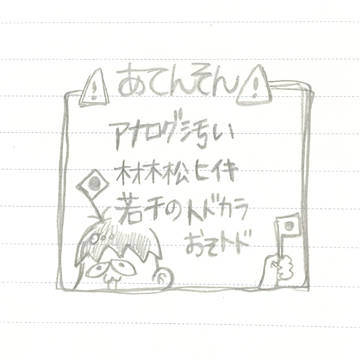 ! あてんそん !
アナログ汚い
材木松ヒイキ
若干のトドカラ
おそトド